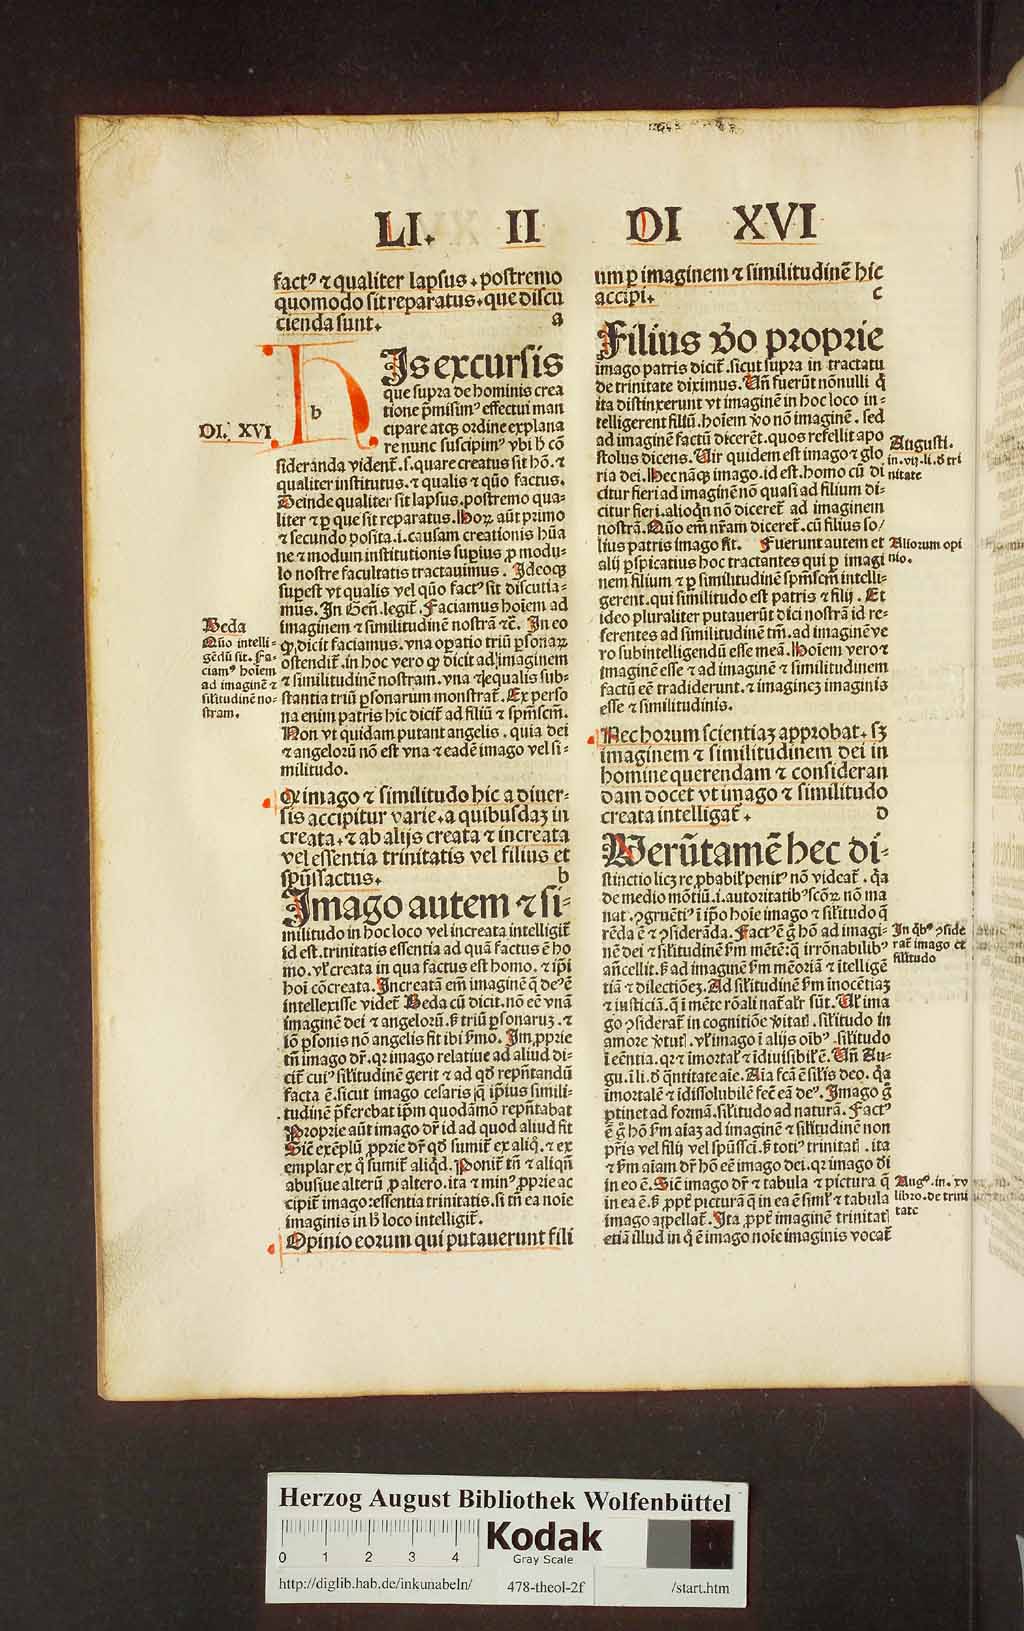 LI. II DI XVI
factꝰ ⁊ qualiter lapsus. postremo
quomodo sit reparatus. que discu
cienda sunt. a
DI. XVI
h
Is excursis
que supra de hominis crea
tione p̄misimꝰ effectui man
cipare atqꝫ ordine explana
re nunc suscipimꝰ vbi h̓ cō
sideranda vident̄. s. quare creatus sit hō. ⁊
qualiter institutus. ⁊ qualis ⁊ quō factus.
Deinde qualiter sit lapsus. postremo qua-
liter ⁊ ꝑ que sit reparatus. Hoꝝ aūt primo
⁊ secundo posita. i. causam creationis hūa
ne ⁊ modum institutionis suꝑius ꝓ modu-
lo nostre facultatis tractauimus. Ideoqꝫ
suꝑest vt qualis vel quō factꝰ sit discutia-
mus. In Gen̄. legit̄. Faciamus hoīem ad
imaginem ⁊ similitudinē nostrā ⁊c̄. In eo
ꝙ dicit faciamus. vna oꝑatio triū ꝑsonaꝝ
ostendit̄. in hoc vero ꝙ dicit ad imaginem
⁊ similitudinē nostram. vna ⁊ equalis sub-
stantia triū ꝑsonarum monstrat̄. Ex perso
na enim patris hic dicit̄ ad filiū ⁊ spm̄scm̄.
Non vt quidam putant angelis. quia dei
⁊ angelorū nō est vna ⁊ eadē imago vel si-
militudo.
Beda
Quō intelli-
gēdū sit. Fa-
ciamꝰ hoīem
ad imaginē ⁊
silitudinē no-
stram.
Q imago ⁊ similitudo hic a diuer-
sis accipitur varie. a quibusdaꝫ in
creata. ⁊ ab alijs creata ⁊ increata
vel essentia trinitatis vel filius et
spūssactus. b
Imago autem ⁊ si-
militudo in hoc loco vel increata intelligit̄
id est. trinitatis essentia ad quā factus ē ho
mo. vl̓ creata in qua factus est homo. ⁊ ip̄i
hoi cōcreata. Increatā em̄ imaginē q̄ deꝰ ē
intellexisse videt̄ Beda cū dicit. nō eē vnā
imaginē dei ⁊ angelorū. s̓ triū ꝑsonaruꝫ. ⁊
iō ꝑsonis nō angelis fit ibi s̓mo. Imꝓprie
tn̄ imago dr̄. qꝛ imago relatiue ad aliud di-
cit̄ cuiꝰ sil̓itudinē gerit ⁊ ad qd̓ repn̄tandū
facta ē. sicut imago cesaris q̄ ip̄ius simili-
tudinē p̄ferebat ip̄m quodāmō repn̄tabat
Proprie aūt imago dr̄ id ad quod aliud fit
Sic̄ exēplū ꝓprie dr̄ qd̓ sumit̄ ex aliq̊. ⁊ ex
emplar ex q̊ sumit̄ aliqd̓. Ponit̄ tn̄ ⁊ aliqn̄
abusiue alterū ꝓ altero. ita ⁊ minꝰ ꝓprie ac
cipit̄ imago: essentia trinitatis. si tn̄ ea noīe
imaginis in h̓ loco intelligit̄.
Opinio eorum qui putauerunt fili
um ꝑ imaginem ⁊ similitudinē hic
accipi. c
Filius v̓o proprie
imago patris dicit̄. sicut supra in tractatu
de trinitate diximus. Un̄ fuerūt nōnulli q̇
ita distinxerunt vt imaginē in hoc loco in-
telligerent filiū. hoīem v̓o nō imaginē. sed
ad imaginē factū dicerēt. quos refellit apo
stolus dicens. Uir quidem est imago ⁊ glo
ria dei. Hec nāqꝫ imago. id est. homo cū di
citur fieri ad imaginē nō quasi ad filium di-
citur fieri. alioqn̄ nō diceret̄ ad imaginem
nostrā. Quō em̄ nr̄am diceret̄. cū filius so/
lius patris imago sit. Fuerunt autem et
alij ꝑspicatius hoc tractantes qui ꝑ imagi
nem filium ⁊ ꝑ similitudinē spm̄scm̄ intelli-
gerent. qui similitudo est patris ⁊ filij. Et
ideo pluraliter putauerūt dici nostrā id re-
ferentes ad similitudinē tm̄. ad imaginē ve
ro subintelligendū esse meā. Hoīem vero ⁊
imaginē esse ⁊ ad imaginē ⁊ similitudinem
factū eē tradiderunt. ⁊ imagineꝫ imaginis
esse ⁊ similitudinis.
Augusti.
in. vij. li. d̓ tri
nitate
Aliorum opi
nio.
Nec horum scientiaꝫ approbat. sꝫ
imaginem ⁊ similitudinem dei in
homine querendam ⁊ consideran
dam docet vt imago ⁊ similitudo
creata intelligat̄. D
Uerūtamē hec di-
stinctio licꝫ reprobabil̓ penitꝰ nō videat̄. q̄a
de medio mōtiū. i. autoritatibꝰ scōꝝ nō ma
nat. ꝯgruētiꝰ ī ip̄o hoīe imago ⁊ sil̓itudo q̄
rēda ē ⁊ ꝯsiderāda. Factꝰ ē g̊ hō ad imagi-
nē dei ⁊ sil̓itudinē s̓m mētē: q̄ irrōnabilibꝰ
an̄cellit. s̓ ad imaginē s̓m mēoriā ⁊ ītelligē
tiā ⁊ dilectiōeꝫ. Ad sil̓itudinē s̓m īnocētiaꝫ
⁊ iusticiā. q̄ i mēte rōali nat̄alr̄ sūt. Ul̓ ima
go ꝯsiderat̄ in cognitiōe v̓itatꝭ. sil̓itudo in
amore v̓tutꝭ. vl̓ imago ī alijs oībꝰ. sil̓itudo
ī eēntia. qꝛ ⁊ īmortal̓ ⁊ īdiuisibil̓ ē. Un̄ Au-
gu. ī li. d̓ q̄ntitate aīe. Aīa fcā ē sil̓is deo. q̄a
īmortalē ⁊ īdissolubilē fec̄ eā deꝰ. Imago g̊
ꝑtinet ad formā. sil̓itudo ad naturā. Factꝰ
ē g̊ hō s̓m aīaꝫ ad imaginē ⁊ sil̓itudinē non
pr̄is vel filij vel spūssci. s̓ totiꝰ trinitatꝭ. ita
⁊ s̓m aīam dr̄ hō eē imago dei. qꝛ imago d̓i
in eo ē. Sic̄ imago dr̄ ⁊ tabula ⁊ pictura q̄
in ea ē. s̓ ꝓpt̄ picturā q̄ in ea ē siml̓ ⁊ tabula
imago appellat̄. Ita ꝓpt̄ imaginē trinitatꝭ
etiā illud in q̊ ē imago noīe imaginis vocat̄
In q̇bꝰ ꝯside
rat̄ imago et
silitudo
Augꝰ. in. xv
libro. de trini
tate
Herzog August Bibliothek Wolfenbüttel
0 1 2 3 4
Kodak
Gray Scale
http://diglib.hab.de/inkunabeln/ 478-theol-2f /start.htm